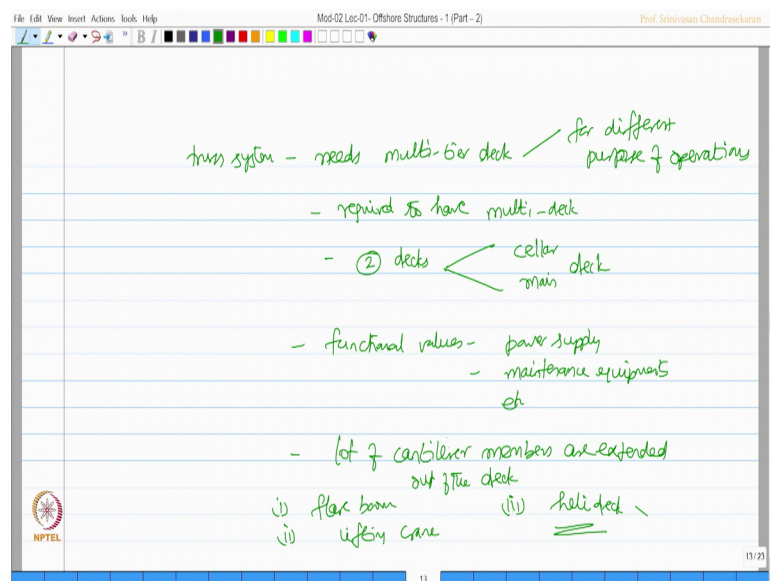 File Edit View Insert Actions Tools Help
Mod-02 Lec-01- Offshore Structures - 1 (Part – 2)
Prof. Srinivasan Chandrasekaran
B I
truss system – needs multi-tier deck for different purpose of operations
- required to have multi-deck
- 2 decks cellar main deck
- functional values – power supply
- maintenance equipments
etc
- lot of cantilever members are extended
out of the deck
(i) flare boom (iii) helideck
(ii) lifting crane
NPTEL
13/23
13